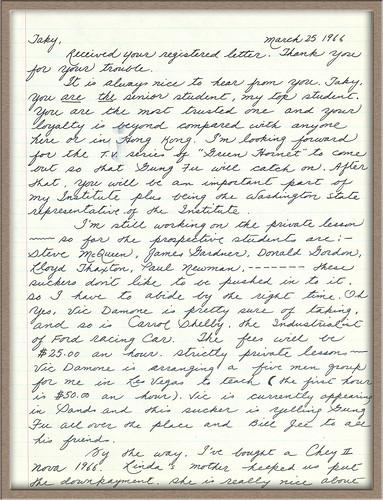 Taky, March 25 1966
Received your registered letter. Thank you
for your trouble.
It is always nice to hear from you. Taky,
you are the senior student, my top student.
You are the most trusted one and your
loyalty is beyond compared with anyone
here or in Hong Kong. I'm looking forward
for the T.V. series of "Green Hornet" to come
out so that Gung Fu will catch on. After
that, you will be an important part of
my Institute plus being the Washington State
representative of the Institute.
I'm still working on the private lesson
— so for the prospective students are :-
Steve McQueen, James Gardner, Donald Gordon,
Lloyd Thaxton, Paul Newman, ------- these
suckers don't like to be pushed in to it,
so I have to abide by the right time. Oh
Yes, Vic Damone is pretty sure of taking,
and so is Carrol Shelby, the Industrialist
of Ford racing Car. The fees will be
$25.00 an hour. strictly private lesson —
Vic Damone is arranging a five men group
for me in Las Vegas to teach (the first hour
is $50.00 an hour). Vic is currently appearing
in Sands and this sucker is yelling Gung
Fu all over the place and Bill Jee to all
his friends.
By the way, I've bought a Chev II
Nova 1966. Linda's mother helped us put
the downpayment. she is really nice about